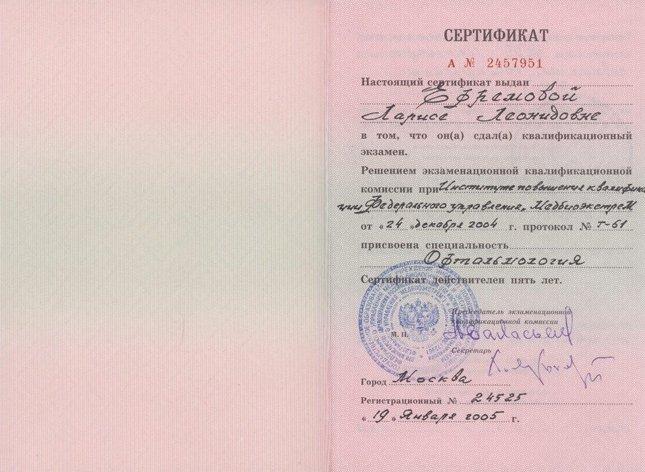 СЕРТИФИКАТ
А № 2457951
Настоящий сертификат выдан
Ефремовой
Ларисе Леонидовне
в том, что он(а) сдал(а) квалификационный
экзамен.
Решением экзаменационной квалификационной
комиссии при Институте повышения квалифика
ции Федерального управления „Медбиоэкстрем
от « 24 » декабря 2004 г. протокол № Т-61
присвоена специальность
Офтальмология
Сертификат действителен пять лет.
Председатель экзаменационной
квалификационной комиссии
М. П.
Секретарь
Город Москва
Регистрационный № 24525
« 19 » Января 2005 г.